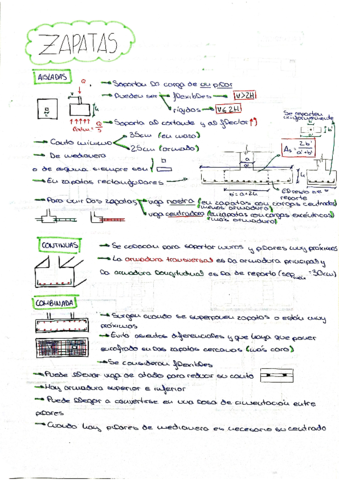 ZAPATAS
AISLADAS
→ Soportan la carga de un pilar
→ Pueden ser → flexibles → V>2H
→ rígidas → V≤2H
→ Soporta al cortante y al flector
→ Canto mínimo → 35cm (en masa)
→ 25cm (armado)
→ De medianera
o de esquina siempre son
→ En zapatas rectangulares
Se reparten
→ Para unir dos zapatas → viga riostra (en zapatas con cargas centradas)
(menos armadura)
→ viga centradora (en zapatas con cargas excéntricas)
(más armadura)
CONTINUAS
→ Se colocan para soportar muros y pilares muy próximos
→ La armadura transversal es la armadura principal y
la armadura longitudinal es la de reparto
COMBINADA
→ Surgen cuando se superponen zapatas o están muy
próximas
→ Evita asientos diferenciales y que haya que poner
enrejado en las zapatas cercanas (más caro)
→ Se consideran flexibles
→ Puede llevar viga de atado para reducir su canto
→ Hay armadura superior e inferior
→ Puede llegar a convertirse en una losa de cimentación entre
pilares
→ Cuando hay pilares de medianera es necesario su centrado